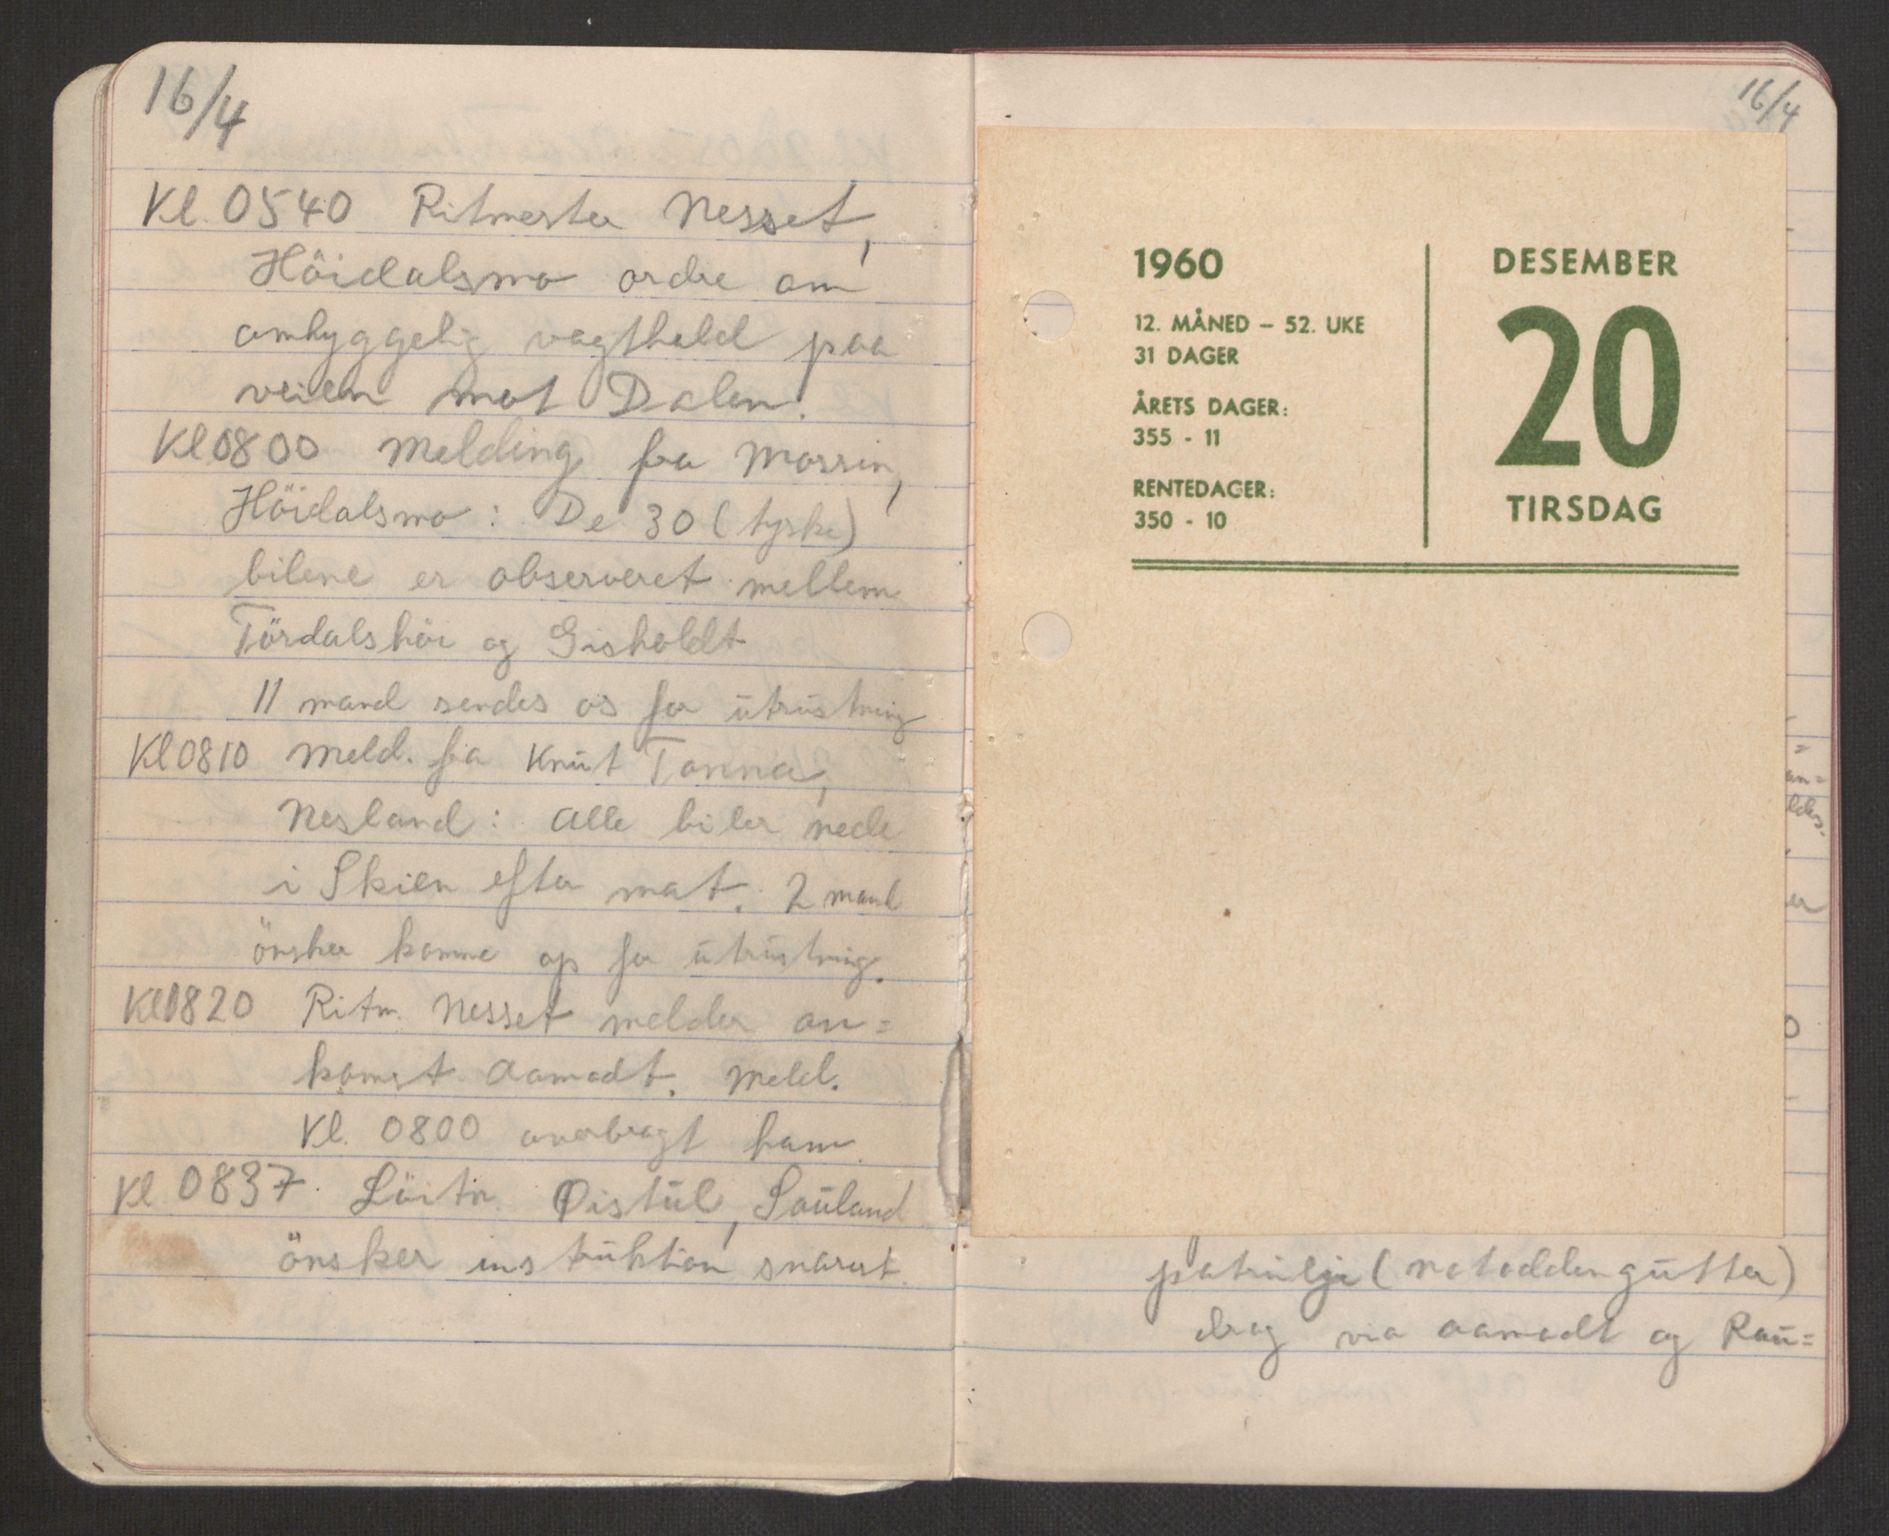 16/4
Kl. 0540 Ritmester Nesset,
Höidalsmo ordre om
omhyggelig vagthold paa
veien mot Dalen.
Kl 0800 Melding fra Morrin,
Höidalsmo: De 30 (tyske)
bilene er observeret mellem
Tördalshöi og Gisholdt
11 mand sendes os for utrustning
Kl 0810 Meld. fra Knut Tonna,
Nesland: Alle biler nede
i Skien efter mat. 2 mand
önsker komme op for utrustning.
Kl 0820 Ritm. Nesset melder an=
komst Aamodt. Meld.
Kl. 0800 overbragt ham.
Kl 0837. Löitn. Øistul, Sauland
önsker instruktion snarest.
16/4
1960
12. MÅNED – 52. UKE
31 DAGER
ÅRETS DAGER:
355 - 11
RENTEDAGER:
350 - 10
DESEMBER
20
TIRSDAG
patrulje (Notoddengutter)
drog via Aamodt og Rau=